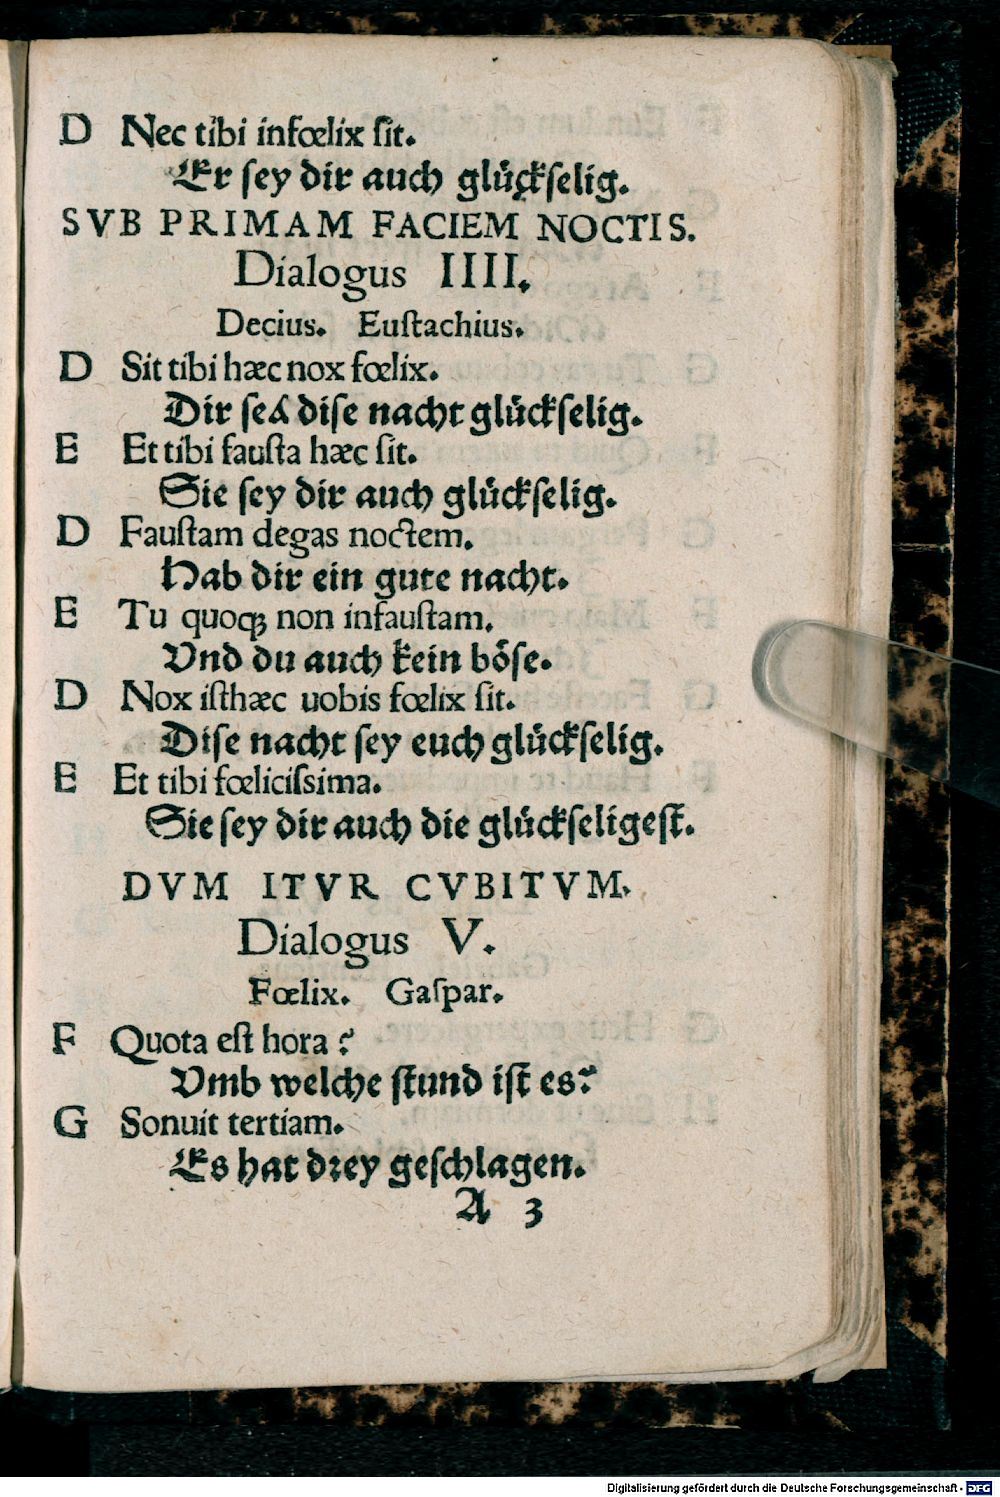 D Nec tibi infœlix ſit.
Er ſey dir auch glückſelig.
SVB PRIMAM FACIEM NOCTIS.
Dialogus IIII.
Decius. Euſtachius.
D Sit tibi hæc nox fœlix.
Dir ſey diſe nacht glückſelig.
E Et tibi fauſta hæc ſit.
Sie ſey dir auch glückſelig.
D Fauſtam degas noctem.
Hab dir ein gute nacht.
E Tu quoqꝫ non infauſtam.
Vnd du auch kein böſe.
D Nox iſthæc uobis fœlix ſit.
Diſe nacht ſey euch glückſelig.
E Et tibi fœliciſsima.
Sie ſey dir auch die glückſeligeſt.
DVM ITVR CVBITVM.
Dialogus V.
Fœlix. Gaſpar.
F Quota eſt hora ?
Vmb welche ſtund iſt es?
G Sonuit tertiam.
Es hat drey geſchlagen.
A 3
Digitalisierung gefördert durch die Deutsche Forschungsgemeinschaft - DFG